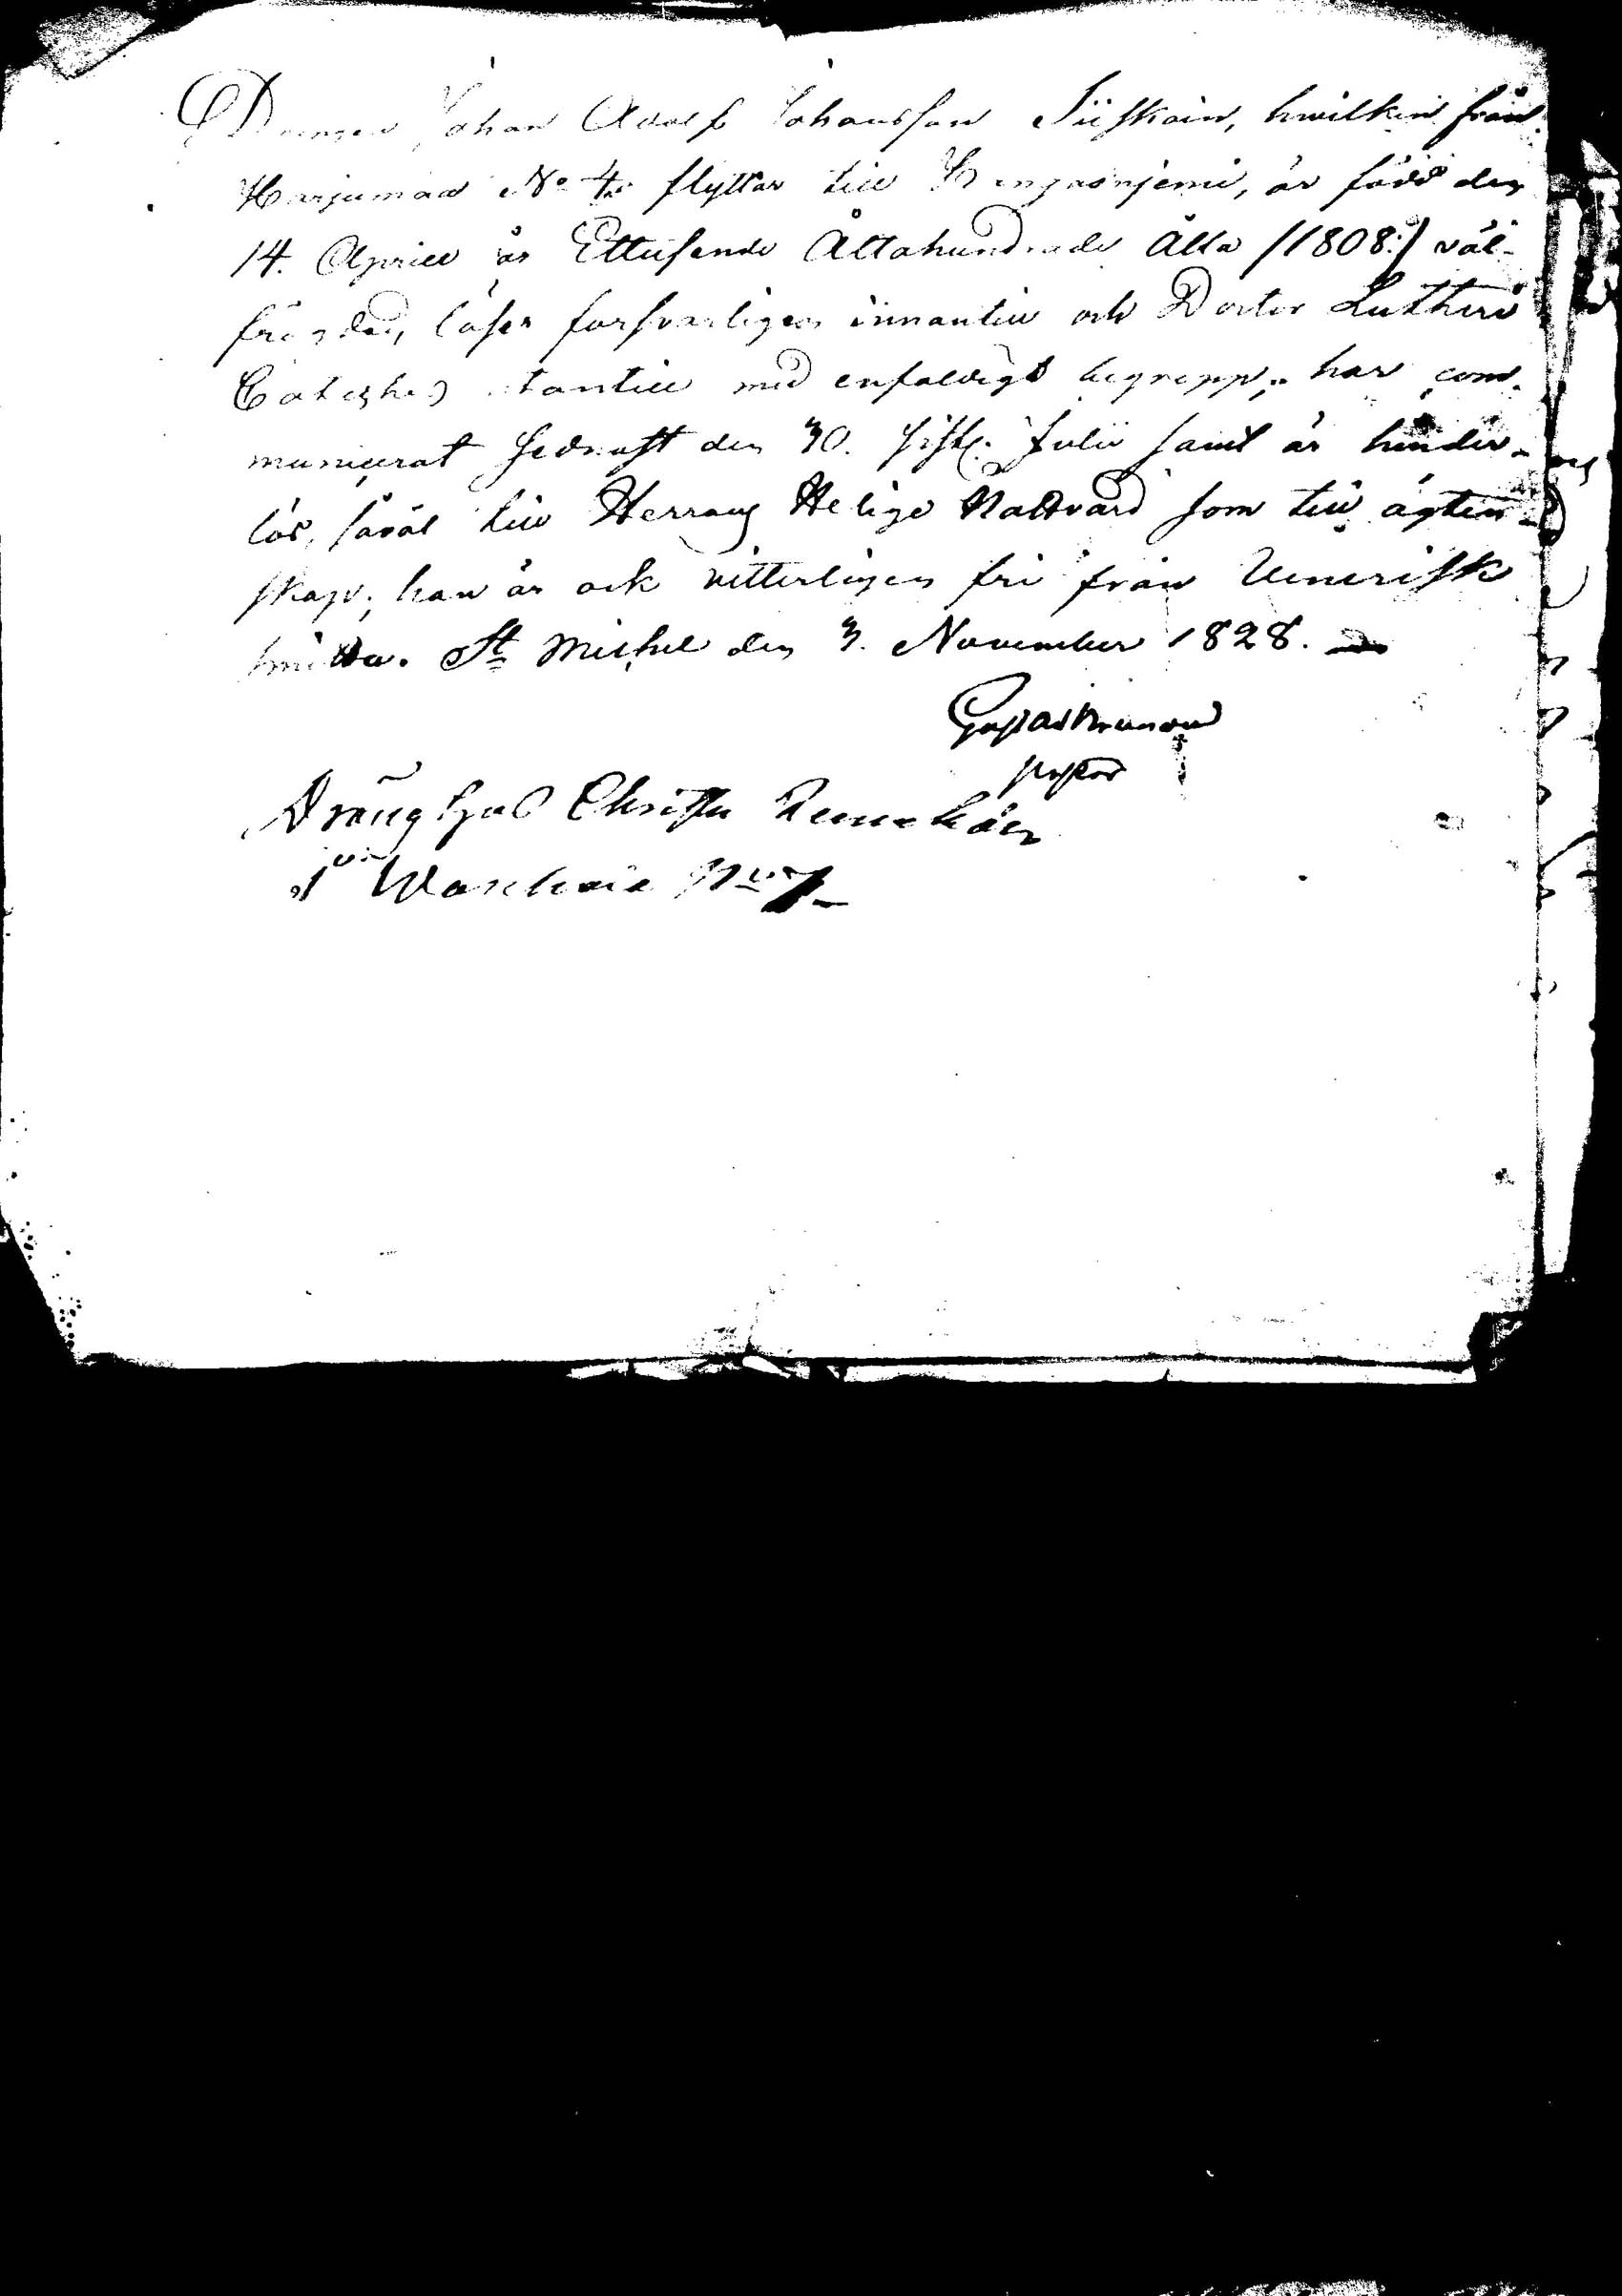 Drängen Johan Adolf Johansson Siiskoin, hwilken från
Harjumaa No 4 flyttar till Kangasnjemi, är född den
14. April år Ettusende Åttahundrade Åtta /:1808:/ väl-
frägdad, läser försvarligen innantill och Doctor Lutheri
Cateches utantill med enfaldigt begrepp; har com-
municerat sednast den 30. sistl. Julii samt är hinder-
lös, såväl till Herrans Helige Nattvard som till ägten-
skap; han är ock vitterligen fri från Venerisk
smitta. St Michel den 3. November 1828.
Gustaf
pastor
Dräng hos Christer
i No 7